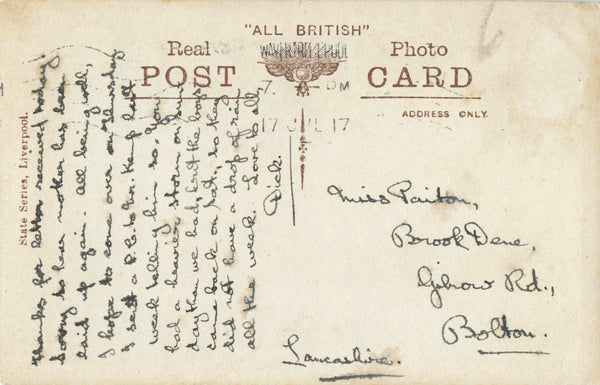 "ALL BRITISH"
Real Photo
POST CARD
ADDRESS ONLY.
WAVERTREE LIVERPOOL
7. PM
17 JUL 17
State Series, Liverpool.
Thanks for letter received today.
Sorry to hear mother has been
laid up again. All being well,
I hope to come over on Thursday
I sent a P.C. to Mr. Kemp last
week telling him so. You
had a heavier storm on Sun
day than we had, but the boys
came back on Sat., so they
did not have a drop of rain
all the week. Love to all,
Dick
Miss Paiton,
Brook Dene,
Gilnow Rd.,
Bolton.
Lancashire.